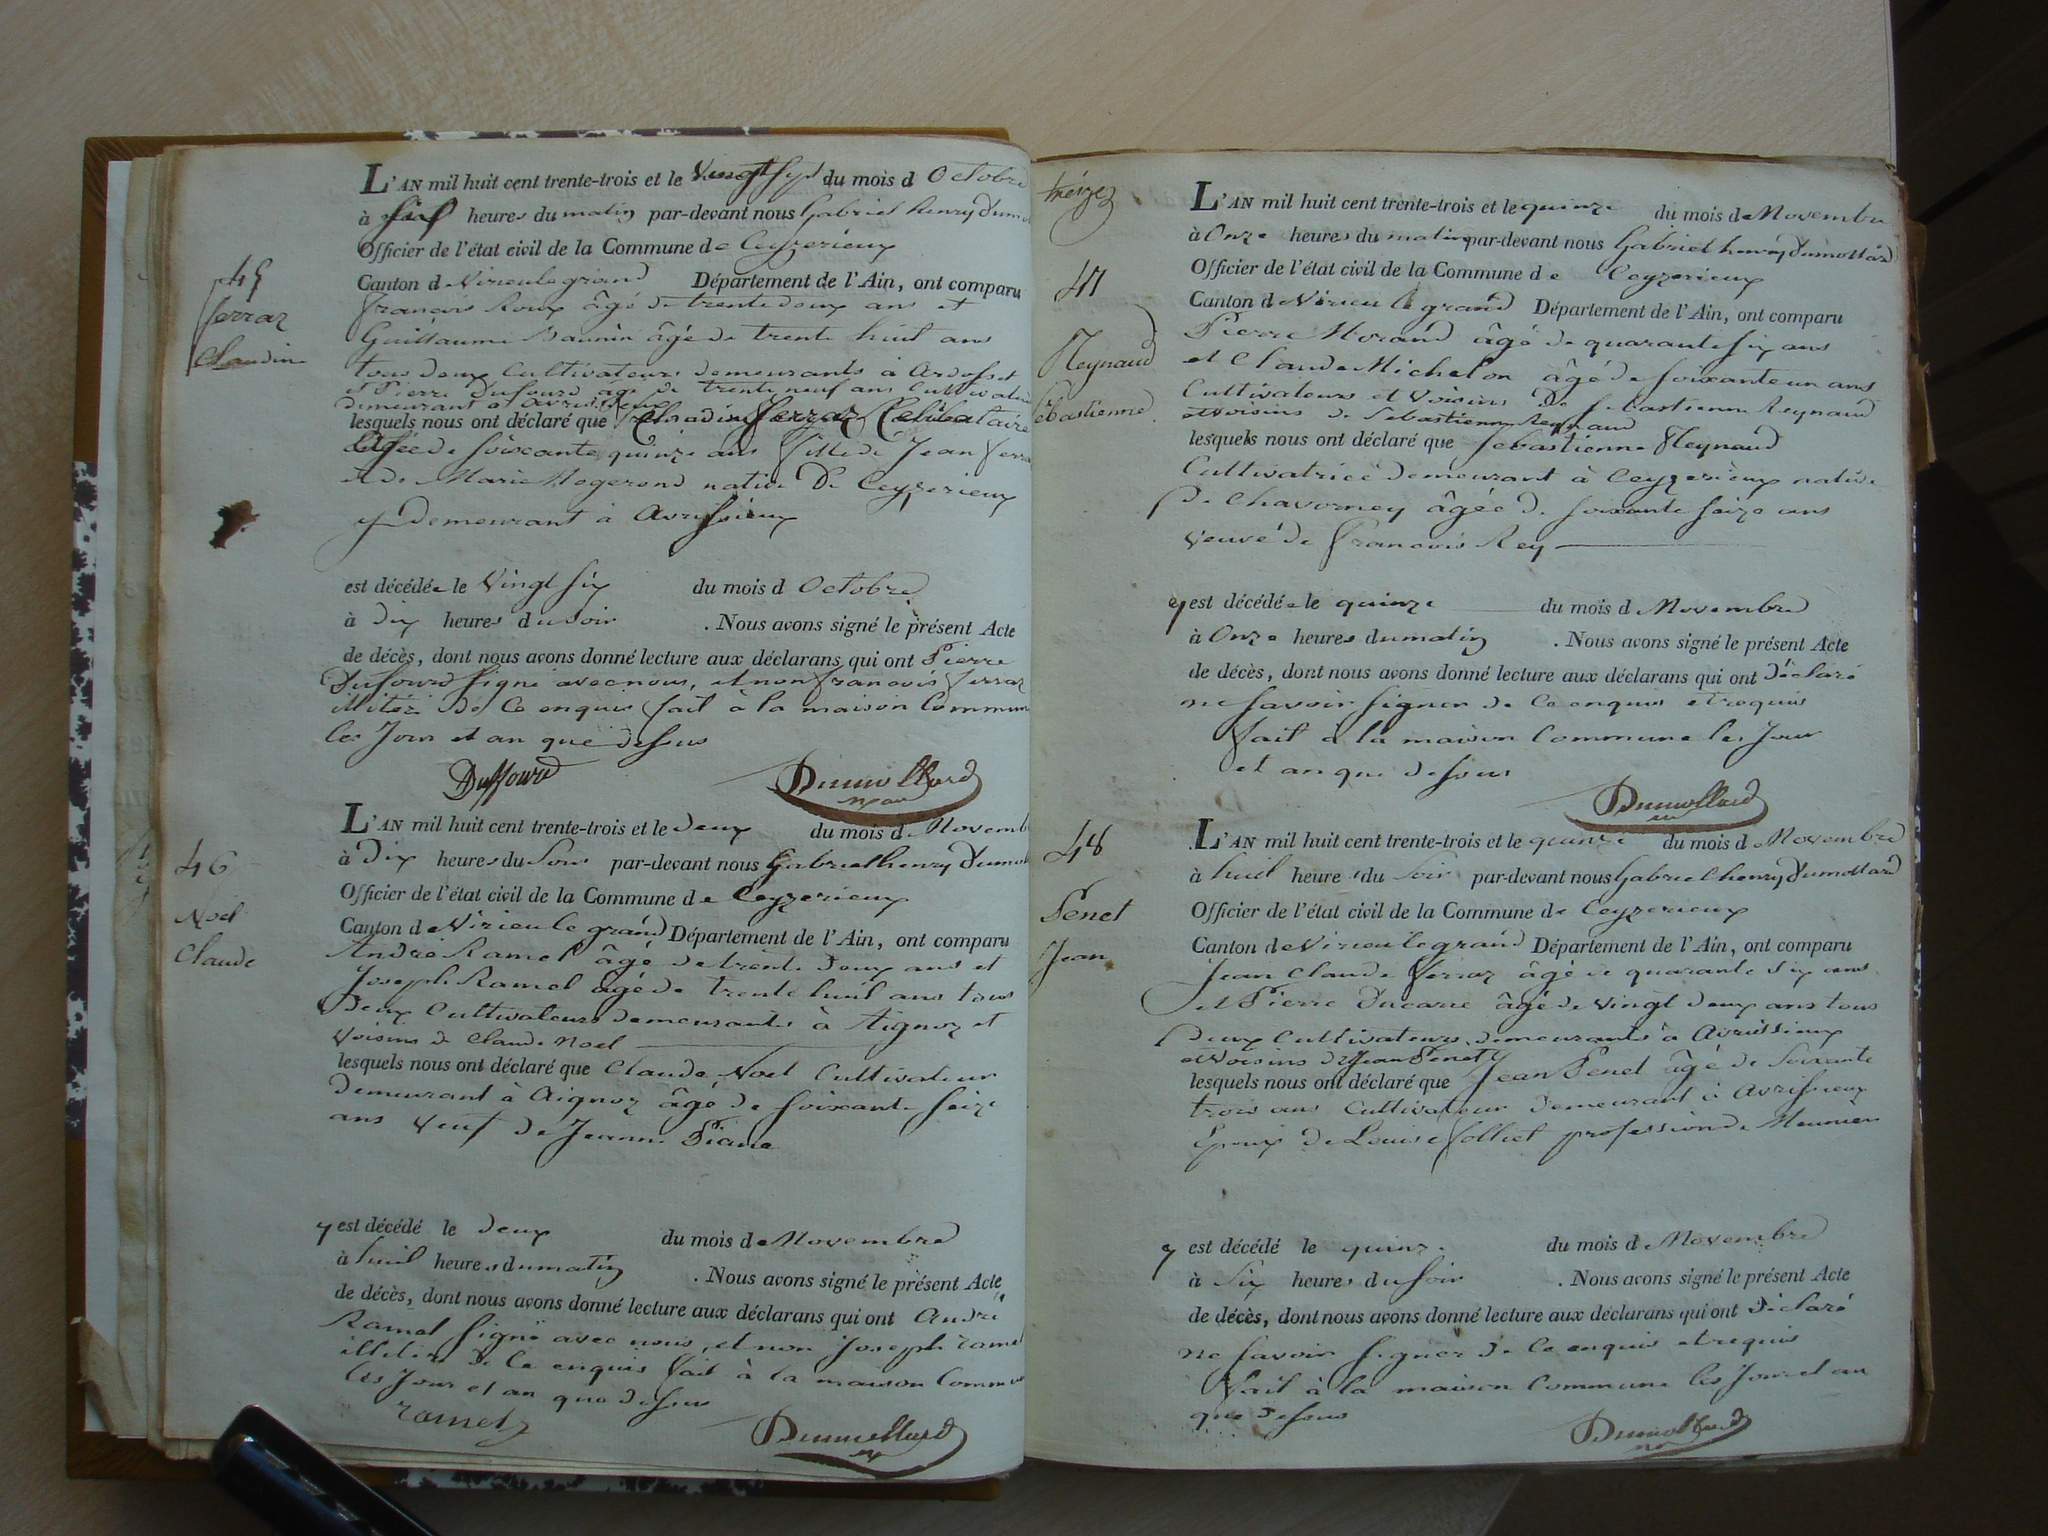 L'AN mil huit cent trente-trois et le Vingt Sept du mois d Octobre
à heures du matin par-devant nous Gabriel henry Dumo
Officier de l'état civil de la Commune de Ceyzerieux
Canton d Virieulegrand Département de l'Ain, ont comparu
45
ferraz
Claudine
francois Roux âgé de trente deux ans et
Guillaume âgé de trente huit ans
tous deux Cultivateurs demeurants a Ardosset
et Pierre Dufourd age de trente neuf ans Cultivateur
demeurant a
lesquels nous ont déclaré que Claudine ferraz Celibataire
Agée de soixante quinze ans fille de Jean ferra
et de Marie Mogerond native De Ceyzerieux
y demeurant à Avrissieux
est décédée le Vingt six du mois d Octobre
à Dix heures du Soir . Nous avons signé le présent Acte
de décès, dont nous avons donné lecture aux déclarans qui ont Pierre
Dufourd signé avec nous, et non francois ferraz
ilitéré De Ce enquis fait à la maison Commune
les Jour et an que dessus
Duffourd Dumollard
L'AN mil huit cent trente-trois et le deux du mois d Novemb
à Dix heures du Soir par-devant nous Gabriel henry Dumol
Officier de l'état civil de la Commune de Ceyzerieux
Canton de Virieu le grand Département de l'Ain, ont comparu
46
Noël
Claude
André Ramel âgé de trente deux ans et
Joseph Ramel âgé de trente huit ans tous
Deux Cultivateurs demeurants à Aignoz et
Voisins de Claude Noel
lesquels nous ont déclaré que Claude Noel Cultivateur
demeurant à Aignoz âgé de soixante seize
ans Veuf de Jeanne
y est décédé le deux du mois de Novembre
à huit heures du matin . Nous avons signé le présent Acte
de décès, dont nous avons donné lecture aux déclarans qui ont André
Ramel signé avec nous, et non Joseph ramel
de Ce enquis fait à la maison Commune
les Jour et an que dessus
ramel Dumollard
treize
L'AN mil huit cent trente-trois et le quinze du mois de Novembre
à Onze heures du matin par-devant nous Gabriel henry Dumollard
Officier de l'état civil de la Commune de Ceyzerieux
Canton d Virieu le grand Département de l'Ain, ont comparu
47
Reynaud
Sebastienne
Pierre Morand âgé de quarante six ans
et Claude Michelon âgé de soixante un ans
Cultivateurs et Voisins De Sebastienne Reynaud
et Voisins de Sebastienne Reynaud
lesquels nous ont déclaré que Sebastienne Reynaud
Cultivatrice demeurant à Ceyzerieux native
De Chavorney âgée de soixante seize ans
Veuve de francois Rey
y est décédée le quinze du mois d Novembre
à Onze heures du matin . Nous avons signé le présent Acte
de décès, dont nous avons donné lecture aux déclarans qui ont Déclaré
ne savoir signer de Ce enquis et requis
fait à la maison Commune les Jour
et an que dessus
Dumollard
L'AN mil huit cent trente-trois et le quinze du mois d Novembre
à huit heures du Soir par-devant nous Gabriel henry Dumollard
Officier de l'état civil de la Commune de Ceyzerieux
Canton de Virieu le grand Département de l'Ain, ont comparu
48
Penet
Jean
Jean Claude ferraz âgé de quarante six ans
et Pierre Ducarre âgé de vingt deux ans tous
Deux Cultivateurs demeurants à Avrissieux
et Voisins de Jean Penet
lesquels nous ont déclaré que Jean Penet âgé de soixante
trois ans Cultivateur demeurant à Avrissieux
Epoux de Louise folliet profession de Meunier
y est décédé le quinze du mois d Novembre
à Six heures du Soir . Nous avons signé le présent Acte
de décès, dont nous avons donné lecture aux déclarans qui ont Déclaré
ne savoir signer de Ce enquis et requis
fait à la maison Commune les Jour et an
que dessus
Dumollard